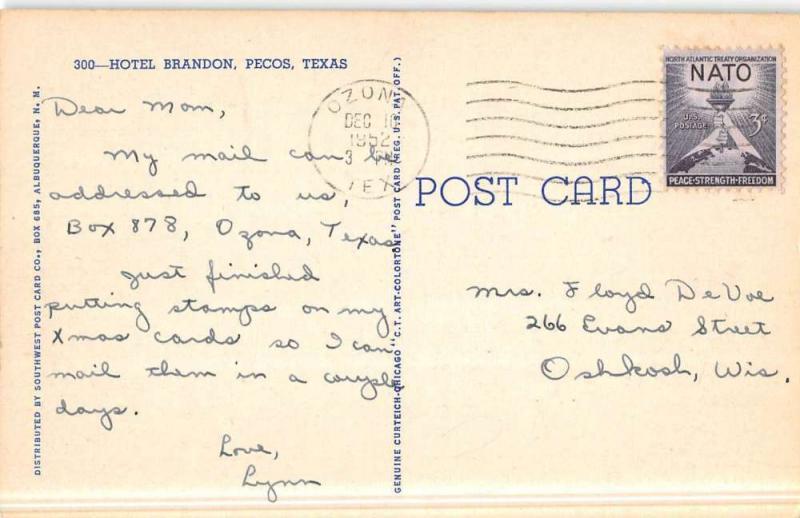 300—HOTEL BRANDON, PECOS, TEXAS
Dear Mom,
My mail can be
addressed to us,
Box 878, Ozona, Texas.
Just finished
putting stamps on my
Xmas cards so I can
mail them in a couple
days.
Love,
Lynn
DISTRIBUTED BY SOUTHWEST POST CARD CO., BOX 685, ALBUQUERQUE, N. M.
GENUINE CURTEICH-CHICAGO "C.T. ART-COLORTONE" POST CARD (REG. U.S. PAT. OFF.)
OZONA
DEC 10
1952
3 PM
TEX
POST CARD
NORTH ATLANTIC TREATY ORGANIZATION
NATO
U.S. POSTAGE
3¢
PEACE·STRENGTH·FREEDOM
Mrs. Floyd DeVoe
266 Evans Street
Oshkosh, Wis.